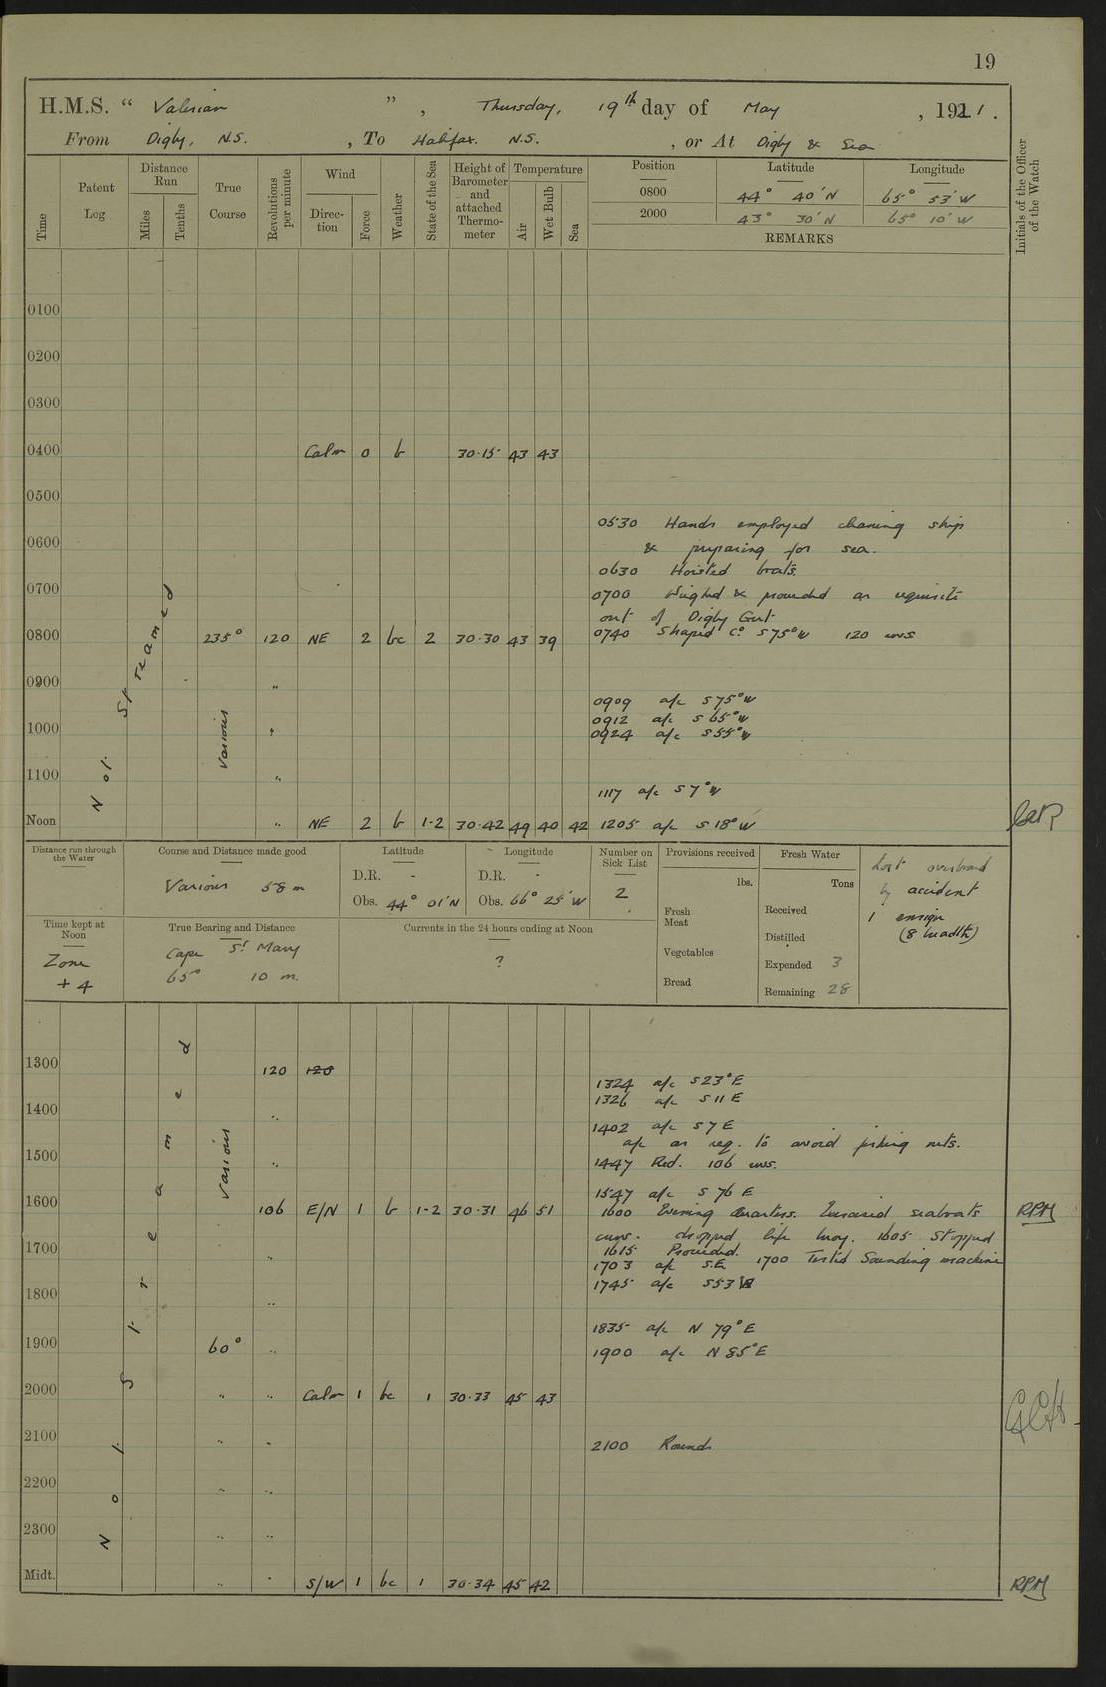 19
H.M.S. “ Valerian ” , Thursday, 19th day of May , 1921.
From Digby, N.S. , To Halifax. N.S. , or At Digby & Sea
Time
Patent Log
Distance Run
Miles
Tenths
True Course
Revolutions per minute
Wind
Direction
Force
Weather
State of the Sea
Height of Barometer and attached Thermometer
Temperature
Air
Wet Bulb
Sea
Position Latitude Longitude
0800 44° 40' N 65° 53' W
2000 43° 30' N 65° 10' W
REMARKS
Initials of the Officer of the Watch
0100
0200
0300
0400 Calm 0 b 30·15 43 43
0500
0530 Hands employed cleaning ship
0600
& preparing for sea.
0630 Hoisted boats.
0700
0700 Weighed & proceeded as requisite
out of Digby Gut
0800 235° 120 NE 2 bc 2 30·30 43 39
0740 Shaped Co S75°W 120 revs
Not Streamed
0900 "
0909 a/c S75°W
0912 a/c S65°W
1000 Various "
0924 a/c S55°W
1100 "
1117 a/c S7°W
Noon " NE 2 b 1-2 30·42 49 40 42 1205 a/c S18°W
Distance run through the Water
Course and Distance made good
Various 58 m
Latitude
D.R. -
Obs. 44° 01' N
Longitude
D.R. -
Obs. 66° 25' W
Number on Sick List
2
Provisions received
lbs.
Fresh Meat
Vegetables
Bread
Fresh Water
Tons
Received
Distilled
Expended 3
Remaining 28
Lost overboard
by accident
1 ensign
(8 breadth)
Time kept at Noon
Zone
+ 4
True Bearing and Distance
Cape St Mary
65° 10 m.
Currents in the 24 hours ending at Noon
?
1300 120 120
1324 a/c S23°E
1326 a/c S11E
1400 "
1402 a/c S7E
a/c as req. to avoid fishing nets.
1500 Various "
1447 Red. 106 revs.
1547 a/c S76E
1600 106 E/N 1 b 1-2 30·31 46 51
1600 Evening Quarters. Exercised seaboats
RPM
crews. dropped life buoy. 1605 Stopped
1615 Proceeded.
1700 "
1703 a/c S.E. 1700 Tested Sounding machine
1745 a/c S53
1800 "
1835 a/c N79°E
1900 60° "
1900 a/c N85°E
2000 " " Calm 1 bc 1 30·33 45 43
2100 " "
2100 Rounds
2200 " "
2300 " "
Not Streamed
Midt. " " S/W 1 bc 1 30·34 45 42
RPM